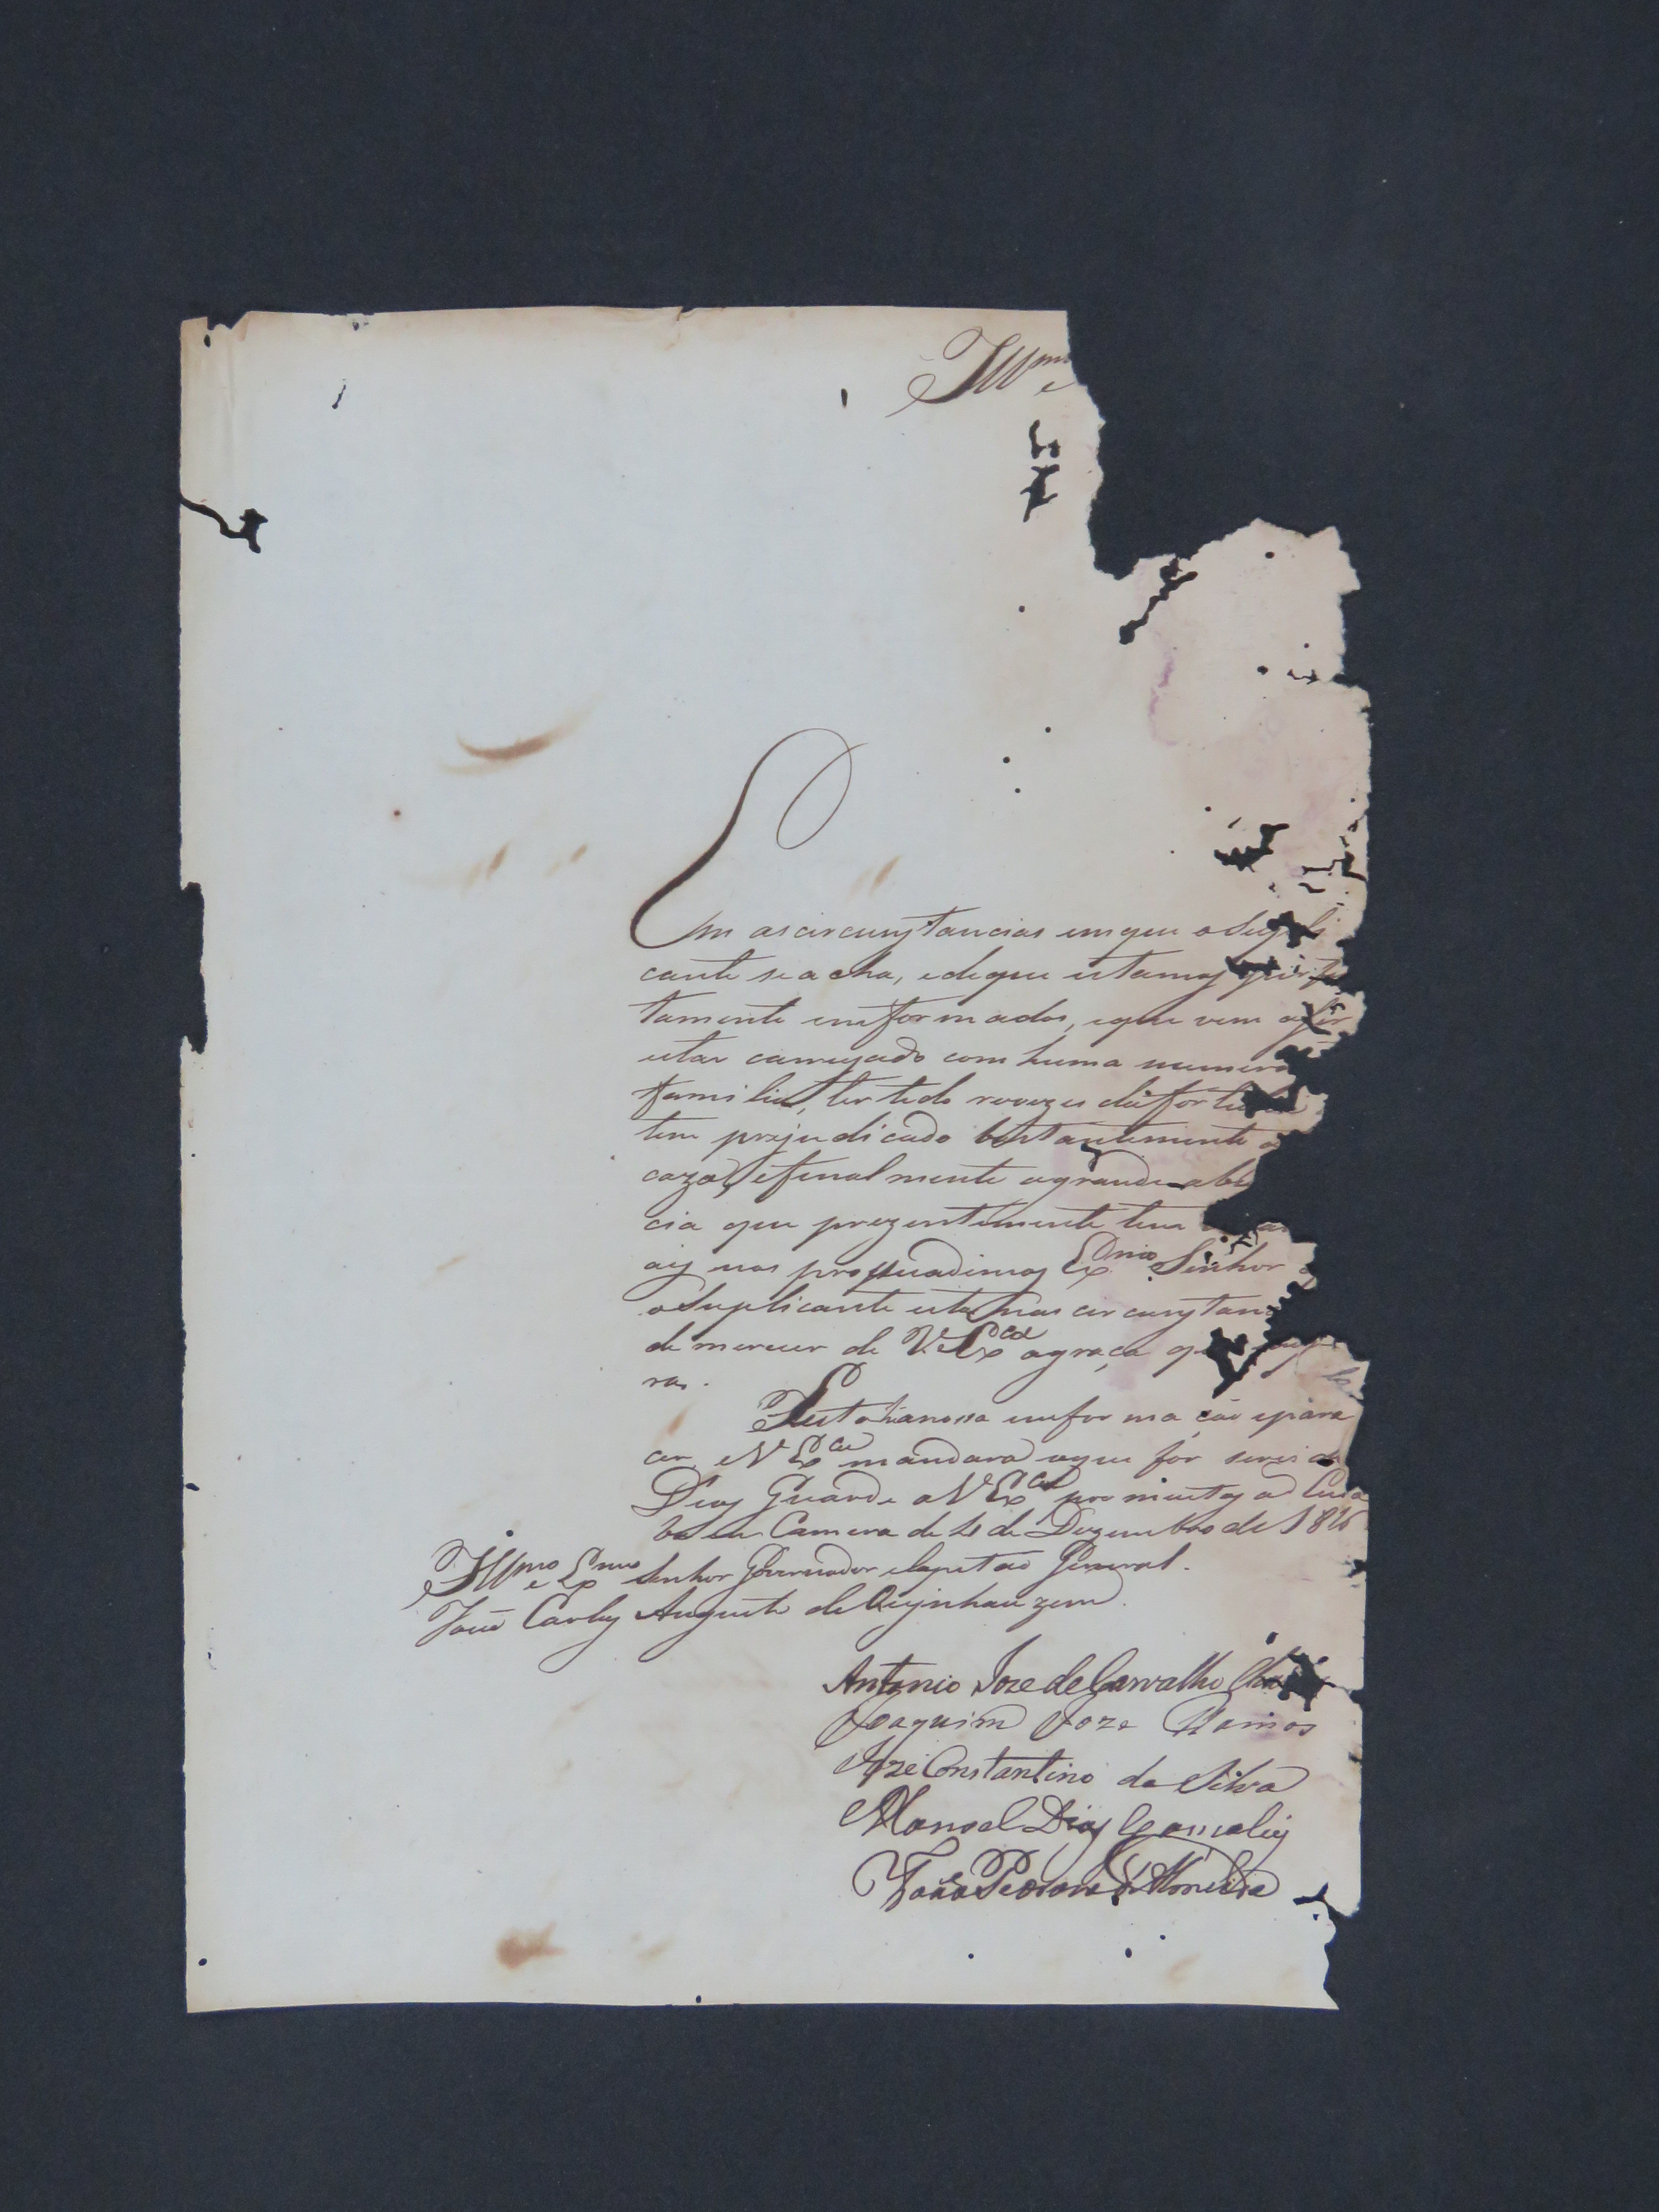 Illmo e
Em as circunstancias em que o Supli
cante se acha, e de que estamos perfei
tamente emformados, e que vem a ser
estar carregado com huma numero
familia, ter tido revezes da fortuna
tem prejudicado bastantemente a
caza, e finalmente a grande abu
cia que prezentemente tem
ais nos prossuadimos Exmo Senhor q
o Suplicante esta nas circunstan
de merecer de V. Exca a graça q
ra.
Esta he a nossa emformação e pare
cer. e V Exca mandara o que for servido
Deos Guarde a V Exca por muitos as Cuia
ba em Camera de 4 de Dezembro de 1816
Illmo e Exmo Senhor Governador e Capitão General.
João Carlos Augusto de Oeynhauzem.
Antonio Joze de Carvalho
Joaquim Joze Ramos
Joze Constantino da Silva
Manoel Dias Goncalves
João Pedrozo d'Almeida